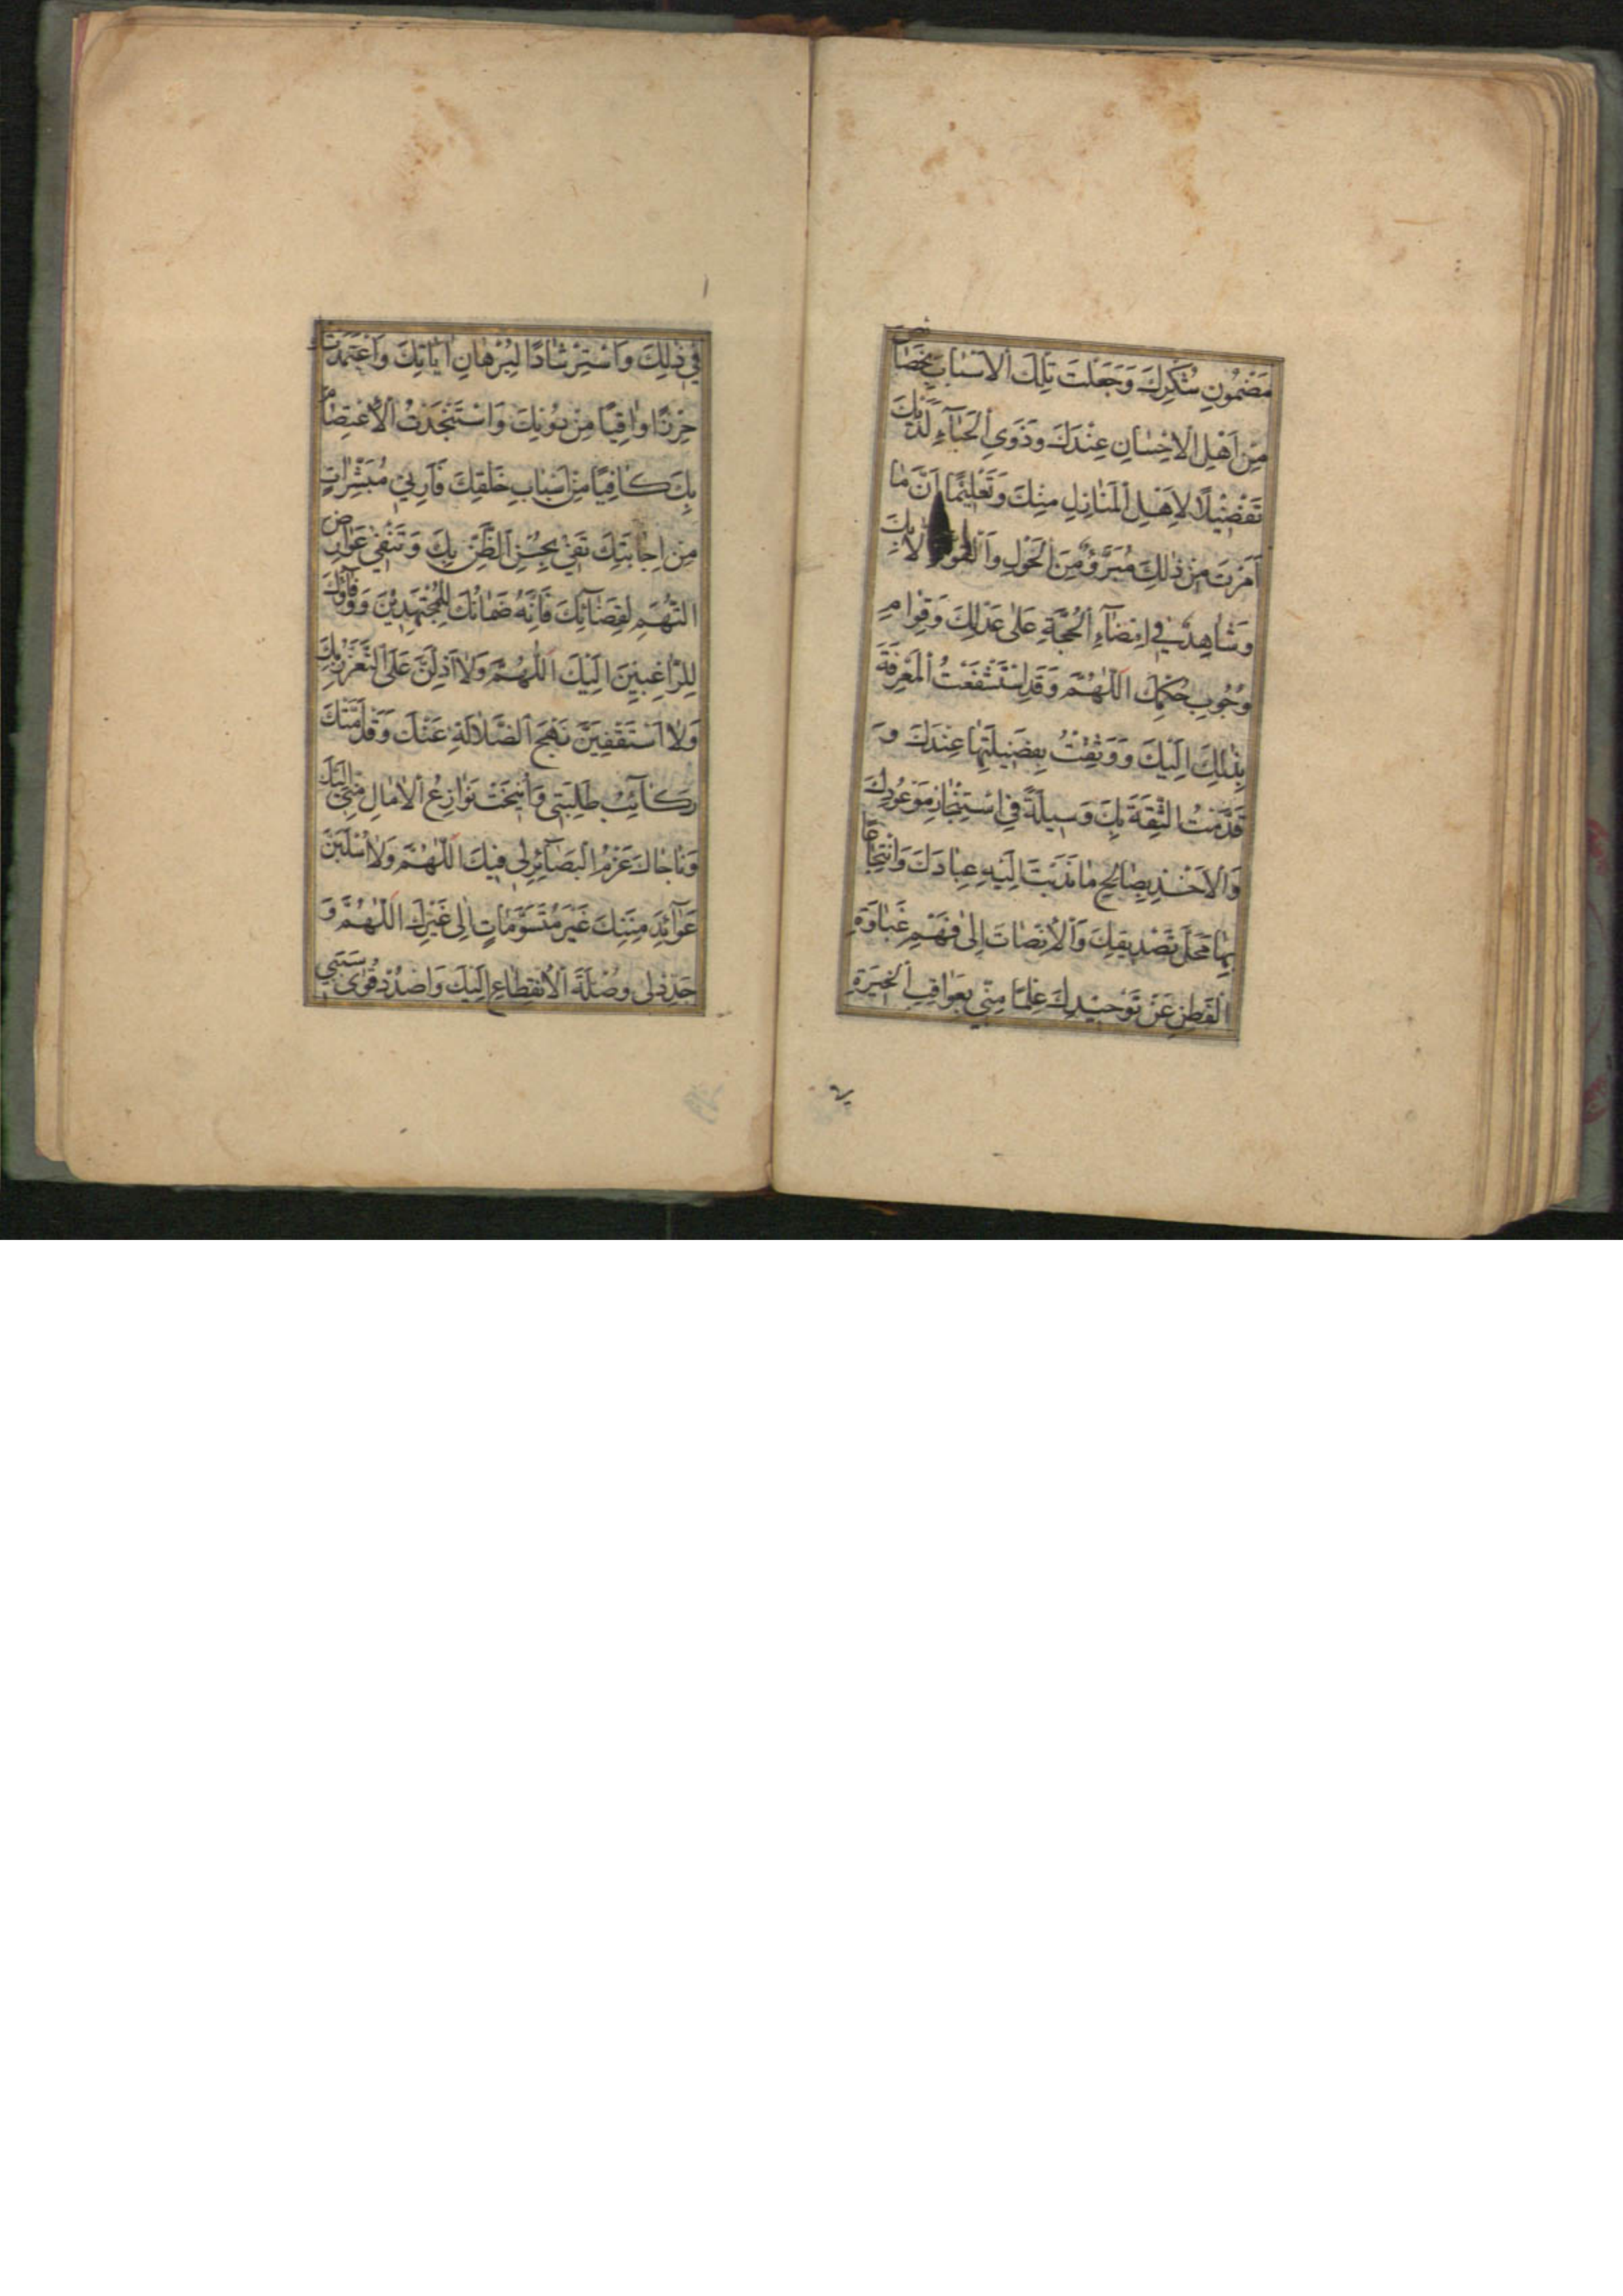 مَضْمُونِ شُكْرِكَ وَجَعَلْتَ تِلْكَ الْاَسْبابَ بِخَصٰائِصَ
مِنْ اَهْلِ الْاِحْسٰانِ عِنْدَكَ وَذَوِي الْحَبٰآءِ لَدَيْكَ
تَفْضِيْلاً لِاَهْلِ الْمَنٰازِلِ مِنْكَ وَتَعْلِيْمًا اَنَّ مٰا
اَمَرْتَ مِنْ ذٰلِكَ مُبَرَّؤٌ مِنَ الْحَوْلِ وَالْقُوَّةِ اِلاّٰ بِكَ
وَشٰاهِدٌ فِي اِمْضٰآءِ الْحُجَّةِ عَلىٰ عَدْلِكَ وَقِوٰامِ
وُجُوبِ حُكْمِكَ اَللّٰهُمَّ وَقَدِ اسْتَشْفَعْتُ الْمَعْرِفَةَ
بِذٰلِكَ اِلَيْكَ وَوَثِقْتُ بِفَضِيلَتِهٰا عِنْدَكَ وَ
قَدَّمْتُ الثِّقَةَ بِكَ وَسِيلَةً فِي اسْتِنْجٰازِ مَوْعُودِكَ
وَالْاَخْذِ بِصٰالِحِ مٰا نَدَبْتَ اِلَيْهِ عِبٰادَكَ وَانْتِجٰاعًا
بِهٰا مَحَلَّ تَصْدِيقِكَ وَالْاِنْصٰاتَ اِلىٰ فَهْمِ غَبٰاوَةِ
الْفِطَنِ عَنْ تَوْحِيْدِكَ عِلْمًا مِنّي بِعَوٰاقِبِ الْخِيَرَةِ
فِي ذٰلِكَ وَاسْتِرْشٰادًا لِبُرْهٰانِ اٰيٰاتِكَ وَاعْتَمَدْتُكَ
حِرْزًا وٰاقِيًا مِنْ دُوْنِكَ وَاسْتَنْجَدْتُ الْاِعْتِصٰامَ
بِكَ كٰافِيًا مِنْ اَسْبٰابِ خَلْقِكَ فَاَرِنِيْ مُبَشِّرٰاتٍ
مِنْ اِجٰابَتِكَ تَفِيْ بِحُسْنِ الظَّنِّ بِكَ وَتَنْفِيْ عَوٰارِضَ
التُّهَمِ لِقَضٰآئِكَ فَاِنَّهُ ضَمٰانُكَ لِلْمُجْتَهِدِيْنَ وَوَفٰآؤُكَ
لِلرّٰاغِبِيْنَ اِلَيْكَ اَللّٰهُمَّ وَلاٰ اَذِلَّنَّ عَلَى التَّعَزُّزِ بِكَ
وَلاٰ اَسْتَقْفِيَنَّ نَهْجَ الضَّلاٰلَةِ عَنْكَ وَقَدْ اَمَّتْكَ
رَكٰآئِبُ طَلِبَتِي وَاُنِيْخَتْ نَوٰازِعُ الْاٰمٰالِ مِنّي اِلَيْكَ
وَنٰاجٰاكَ عَزْمُ الْبَصٰآئِرِ لِي فِيْكَ اَللّٰهُمَّ وَلاٰ اُسْلَبَنَّ
عَوٰآئِدَ مِنَنِكَ غَيْرَ مُتَوَسِّمٰاتٍ اِلىٰ غَيْرِكَ اَللّٰهُمَّ وَ
جَدِّدْ لِي وُصْلَةَ الْاِنْقِطٰاعِ اِلَيْكَ وَاصْدُدْ قُوىٰ سَبَبِي